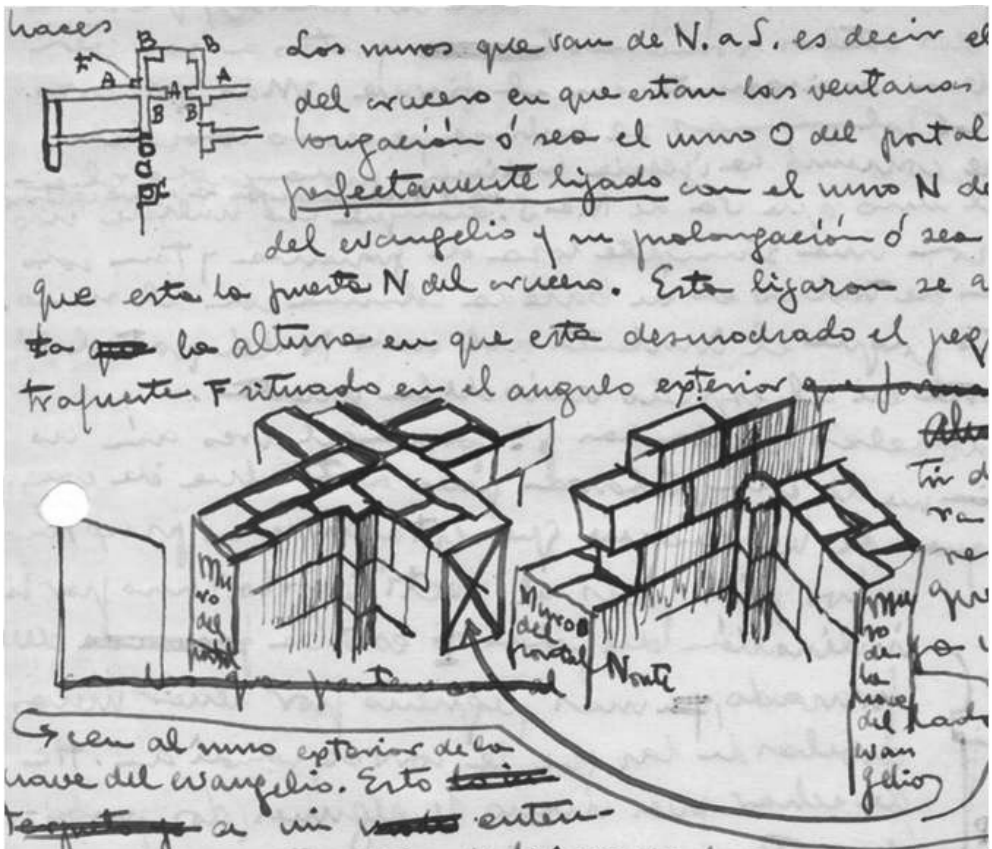 haces
Los muros que van de N. a S. es decir el
del crucero en que estan las ventanas
longación ó sea el muro O del portal
perfectamente ligado con el muro N de
del evangelio y su prolongación ó sea
que esta la puerta N del crucero. Esta ligazon se a
ta que la altura en que esta desmodrado el peq
trapuerte F situado en el angulo exterior que forma
B B
F
A A A
B B
C
C
Alte
tir d
ra
ne
que
Mu
ro
del
portal
Muro
del
portal
Norte
Mu
ro
de
la
nave
del
evan
gelio
lado
cen al muro exterior de la
nave del evangelio. Esto
a mi enten-